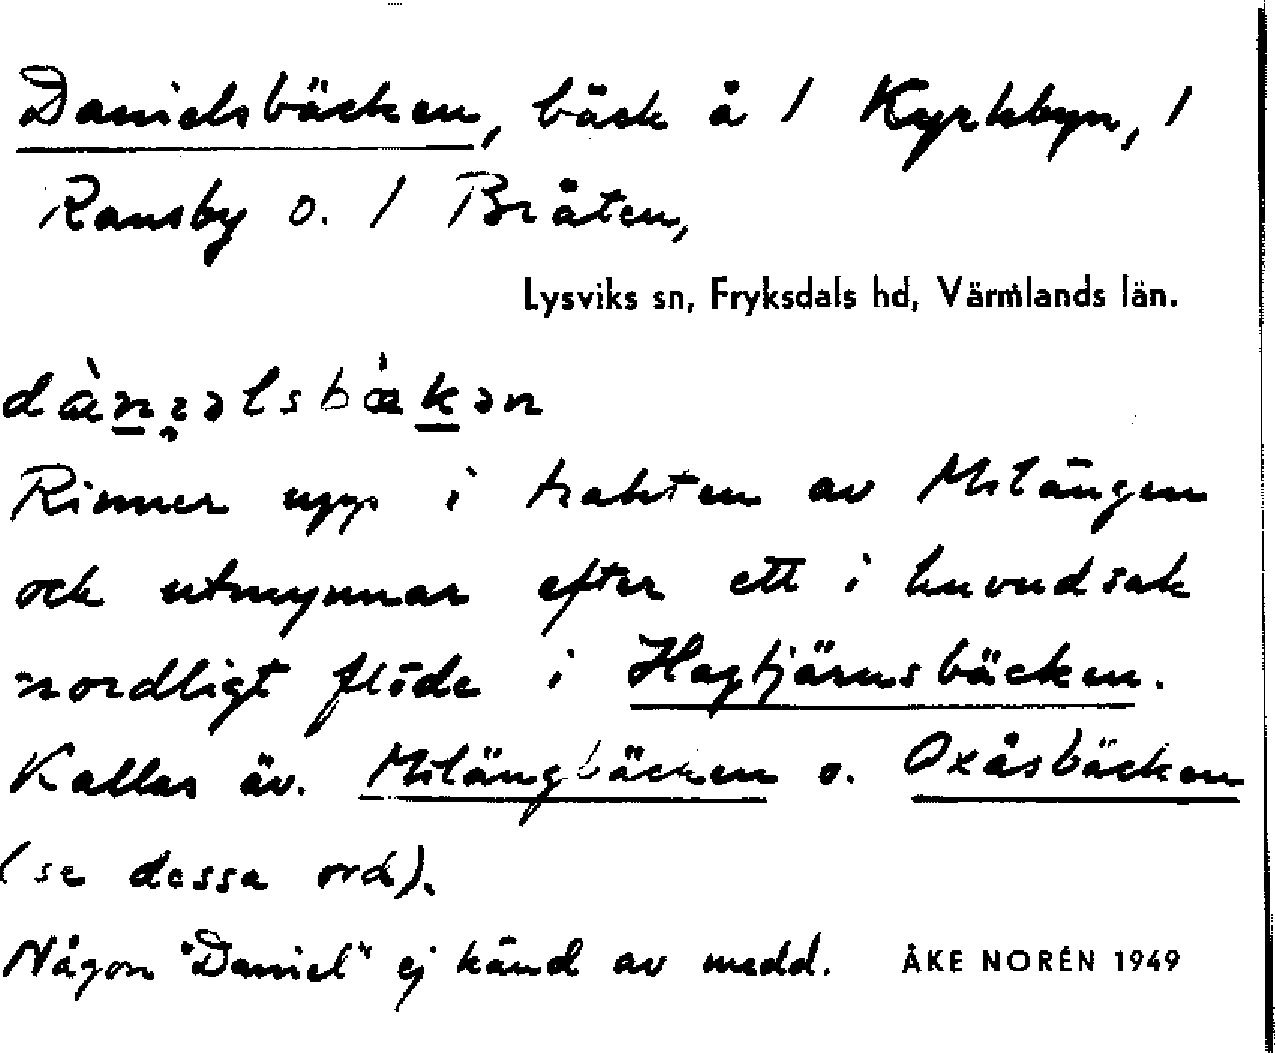 Danielsbäcken, bäck å 1 Kyrkbyn, 1
Ransby o. 1 Bråten,
Lysviks sn, Fryksdals hd, Värmlands län.
Rinner upp i trakten av Milängen
och utmynnar efter ett i huvudsak
nordligt flöde i Hagtjärnsbäcken.
Kallas äv. Milängbäcken o. Oxåsbäcken
(se dessa ord).
Någon "Daniel" ej känd av medd. ÅKE NORÉN 1949